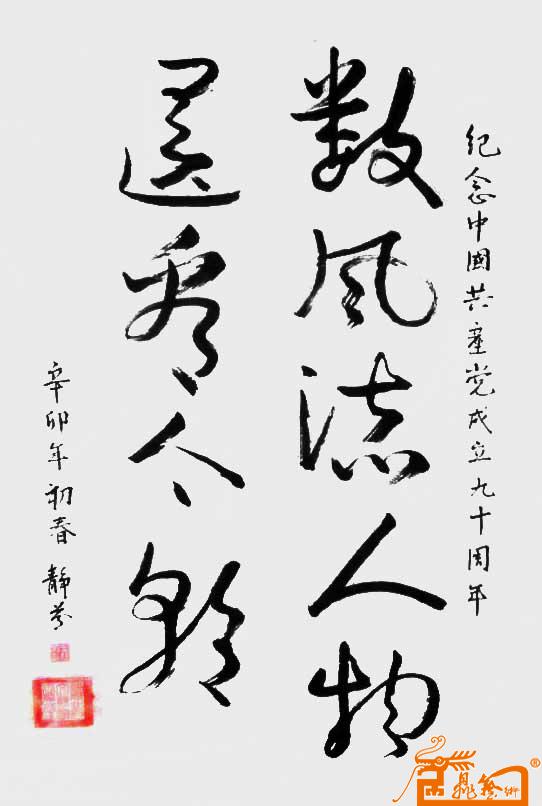 纪念中國共產党成立九十周年
数风流人物
還看今朝
辛卯年初春 静芬